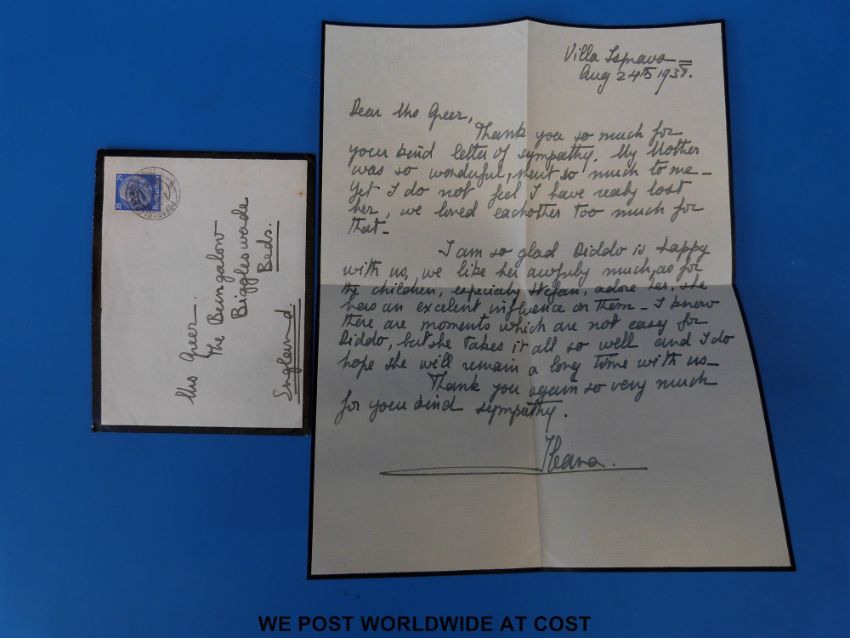 Villa Isprava
Aug 24th 1938.
Dear Mrs Greer,
Thank you so much for
your kind letter of sympathy. My Mother
was so wonderful, ment so much to me -
Yet I do not feel I have realy lost
her, we loved eachother too much for
that -
I am so glad Diddo is happy
with us, we like her awfuly much, as for
the children, especialy Stefan, adore her, she
has an excelent influence on them - I know
there are moments which are not easy for
Diddo, but she takes it all so well and I do
hope she will remain a long time with us -
Thank you again so very much
for your kind sympathy.
Ileana.
25
25
Mrs Greer.
The Bungalow
Biggleswade
Beds.
England.
WE POST WORLDWIDE AT COST